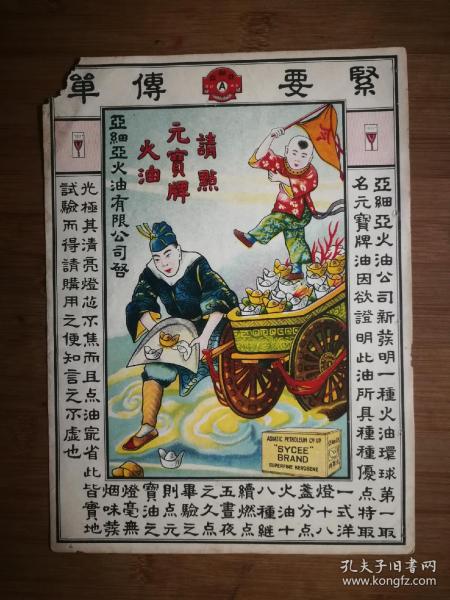 緊要傳單
亞細亞火油公司新發明一種火油環球第一取
名元寶牌油因欲證明此油所具種種優点特取
一式洋
燈十八
盞分点
火油十
八種継
續燃点
五晝夜
之久点
畢驗之
則点元
寶油之
燈毫無
烟味發
光極其清亮燈芯不焦而且点油寔省此皆實地
試驗而得請購用之便知言之不虛也
請點
元寶牌
火油
亞細亞火油有限公司啓
A
ASIATIC PETROLEUM CO. LTD
"SYCEE"
BRAND
SUPERFINE KEROSENE
孔夫子旧书网
www.kongfz.com